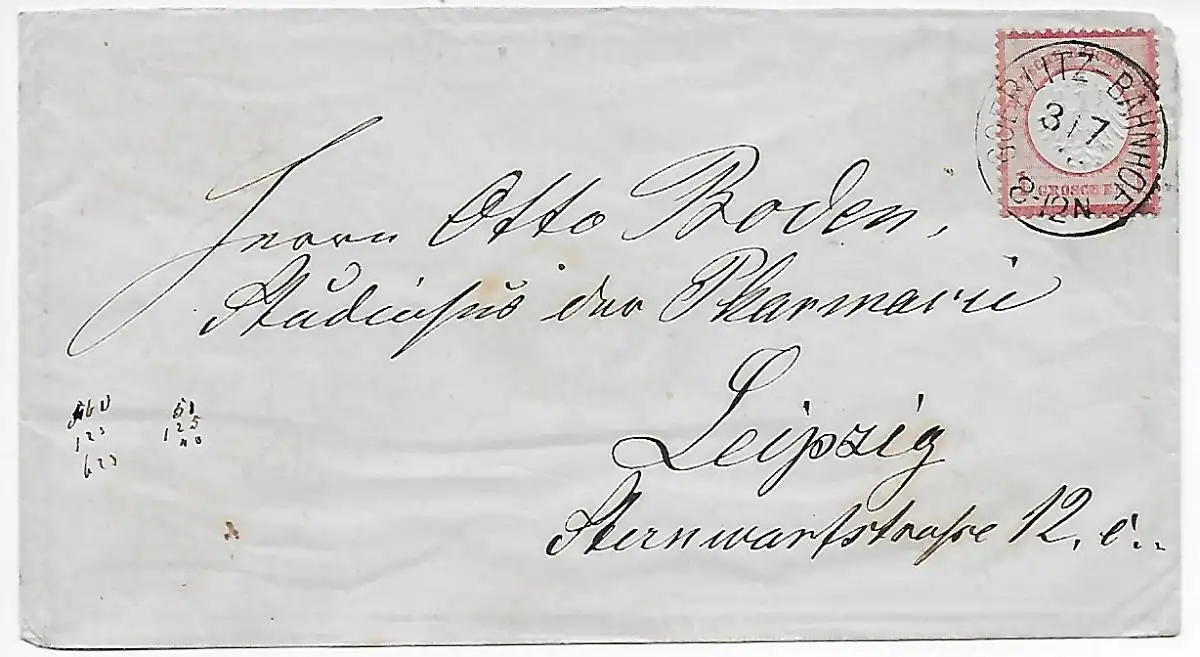 GOERLITZ-BAHNHOF
3/7
8-12N
1 GROSCHEN
Herrn Otto Boden,
Studiosus der Pharmacie
Leipzig
Sternwartstraße 12. c..
123
623
51
125